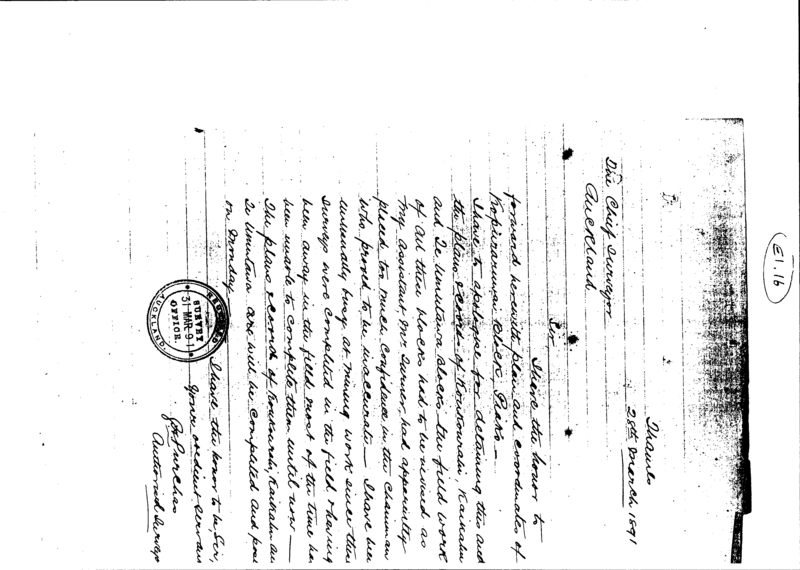 E1.16
Thames
28th March 1891
The Chief Surveyor
Auckland
Sir,
I have the honor to
forward herewith plan and coordinates of
Block Piako –
I have to apologise for detaining this and
the plans & coords of
and Te Umutawa blocks the field work
of all these blocks had to be revised as
my assistant Mr Turner, had apparently
placed too much confidence in the chainman
who proved to be inaccurate – I have been
unusually busy at mining work since these
surveys were completed in the field & having
been away in the field most of the time have
been unable to complete them until now –
The plans & coords of
Te Umutawa will be completed and
on Monday
I have the honor to be Sir,
Your obedient Servant
Authorised Surveyor
RECEIVED
SURVEY
31 MAR 91
OFFICE.
AUCKLAND